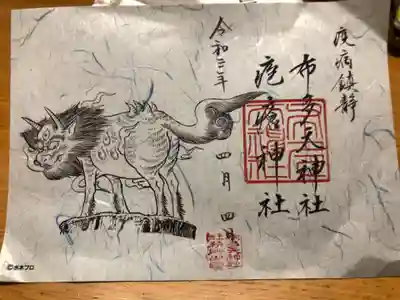 疫病鎮静
布多天神社
疱瘡神社
令和三年
四月四日
©水木プロ